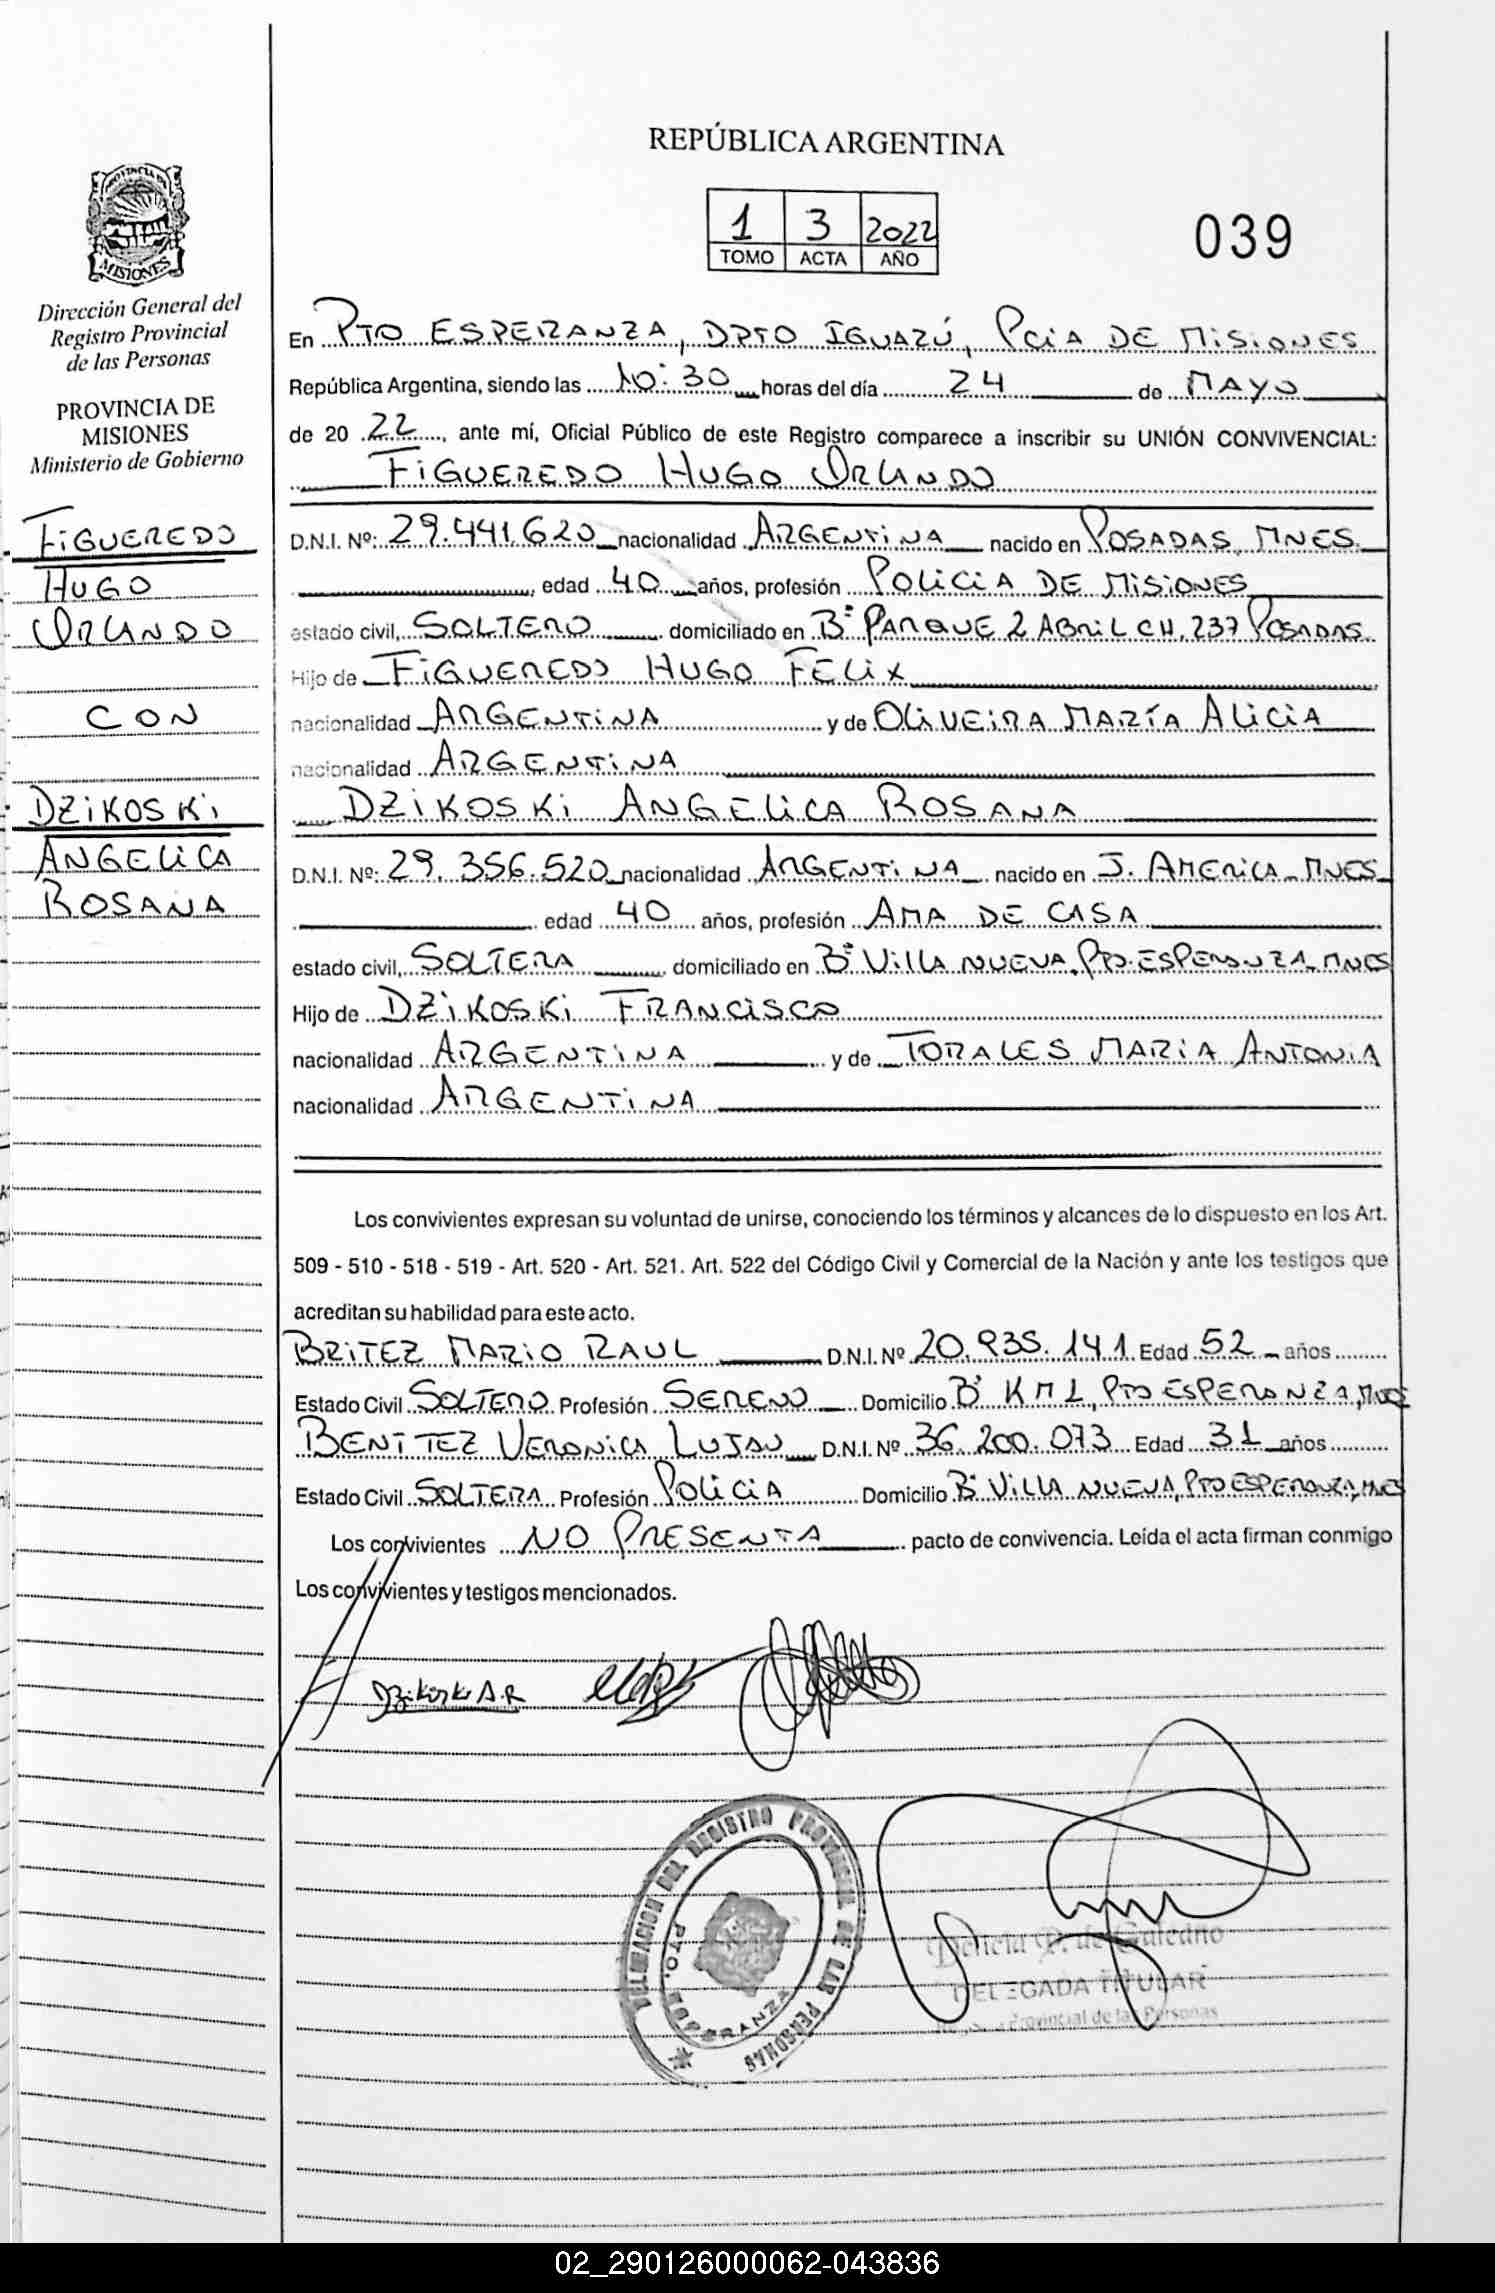 REPÚBLICA ARGENTINA
1 3 2022
TOMO ACTA AÑO
039
PROVINCIA DE
MISIONES
Dirección General del
Registro Provincial
de las Personas
PROVINCIA DE
MISIONES
Ministerio de Gobierno
FIGUEREDO
HUGO
ORLANDO
CON
DZIKOSKI
ANGELICA
ROSANA
En PTO ESPERANZA, DPTO IGUAZÚ, PCIA DE MISIONES
República Argentina, siendo las 10:30 horas del día 24 de MAYO
de 20 22, ante mí, Oficial Público de este Registro comparece a inscribir su UNIÓN CONVIVENCIAL:
FIGUEREDO HUGO ORLANDO
D.N.I. Nº: 29.441.620 nacionalidad ARGENTINA nacido en POSADAS, MNES.
, edad 40 años, profesión POLICIA DE MISIONES
estado civil, SOLTERO domiciliado en Bº PARQUE 2 ABRIL CH. 237 POSADAS.
Hijo de FIGUEREDO HUGO FELIX
nacionalidad ARGENTINA y de OLIVEIRA MARÍA ALICIA
nacionalidad ARGENTINA
DZIKOSKI ANGELICA ROSANA
D.N.I. Nº: 29.356.520 nacionalidad ARGENTINA nacido en J. AMERICA - MNES
edad 40 años, profesión AMA DE CASA
estado civil, SOLTERA domiciliado en Bº VILLA NUEVA, PTO ESPERANZA - MNES
Hijo de DZIKOSKI FRANCISCO
nacionalidad ARGENTINA y de TORALES MARIA ANTONIA
nacionalidad ARGENTINA
Los convivientes expresan su voluntad de unirse, conociendo los términos y alcances de lo dispuesto en los Art.
509 - 510 - 518 - 519 - Art. 520 - Art. 521. Art. 522 del Código Civil y Comercial de la Nación y ante los testigos que
acreditan su habilidad para este acto.
BRITEZ MARIO RAUL D.N.I. Nº 20.935.141 Edad 52 años
Estado Civil SOLTERO Profesión SERENO Domicilio Bº KM 1, PTO ESPERANZA, MNES
BENITEZ VERONICA LUJAN D.N.I. Nº 36.200.073 Edad 31 años
Estado Civil SOLTERA Profesión POLICIA Domicilio Bº VILLA NUEVA, PTO ESPERANZA, MNES
Los convivientes NO PRESENTA pacto de convivencia. Leída el acta firman conmigo
Los convivientes y testigos mencionados.
Dzikoski A.R
DEL REGISTRO PROVINCIAL DE LAS PERSONAS
PTO. ESPERANZA
DELEGADA TITULAR
Provincial de las Personas
02_290126000062-043836